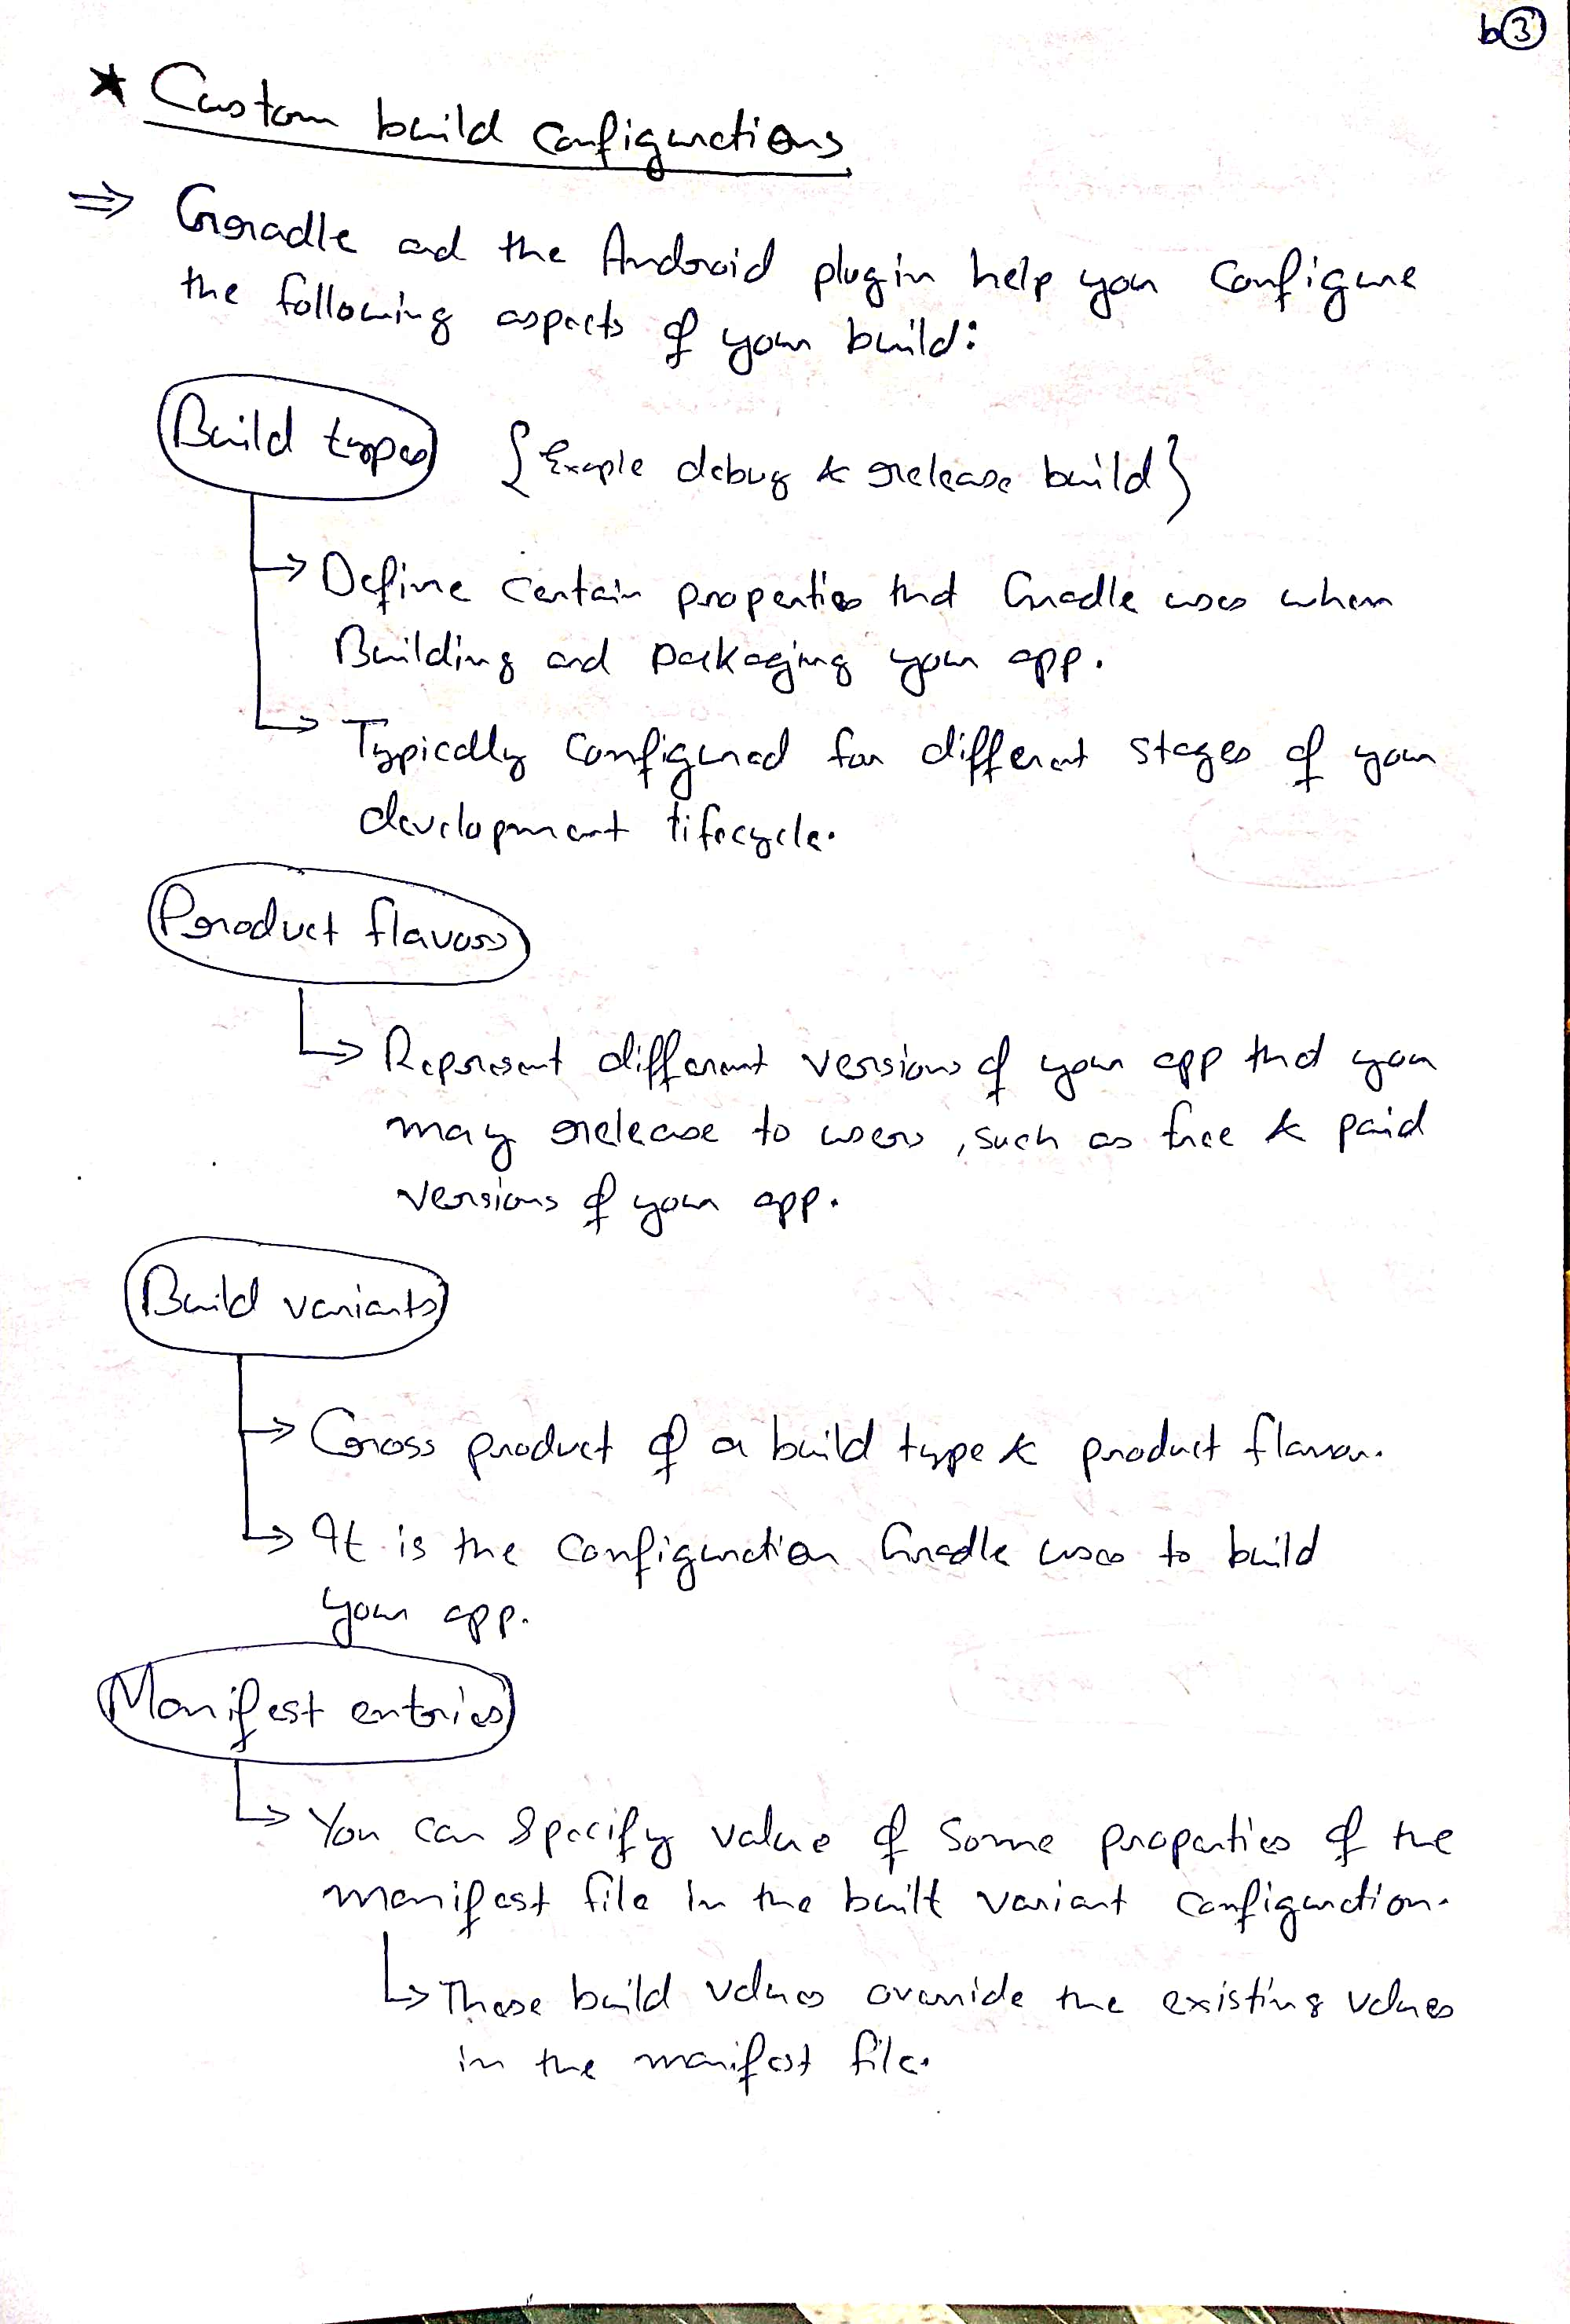 b③
* Custom build configurations
⇒ Gradle and the Android plugin help you configure
the following aspects of your build:
Build types {Example debug & release build}
→ Define certain properties that Gradle uses when
Building and packaging your app.
→ Typically configured for different stages of your
development lifecycle.
Product flavors
→ Represent different versions of your app that you
may release to users, such as free & paid
versions of your app.
Build variants
→ Cross product of a build type & product flavor.
→ It is the configuration Gradle uses to build
your app.
Manifest entries
→ You can specify value of some properties of the
manifest file in the built variant configuration.
→ These build values override the existing values
in the manifest file.